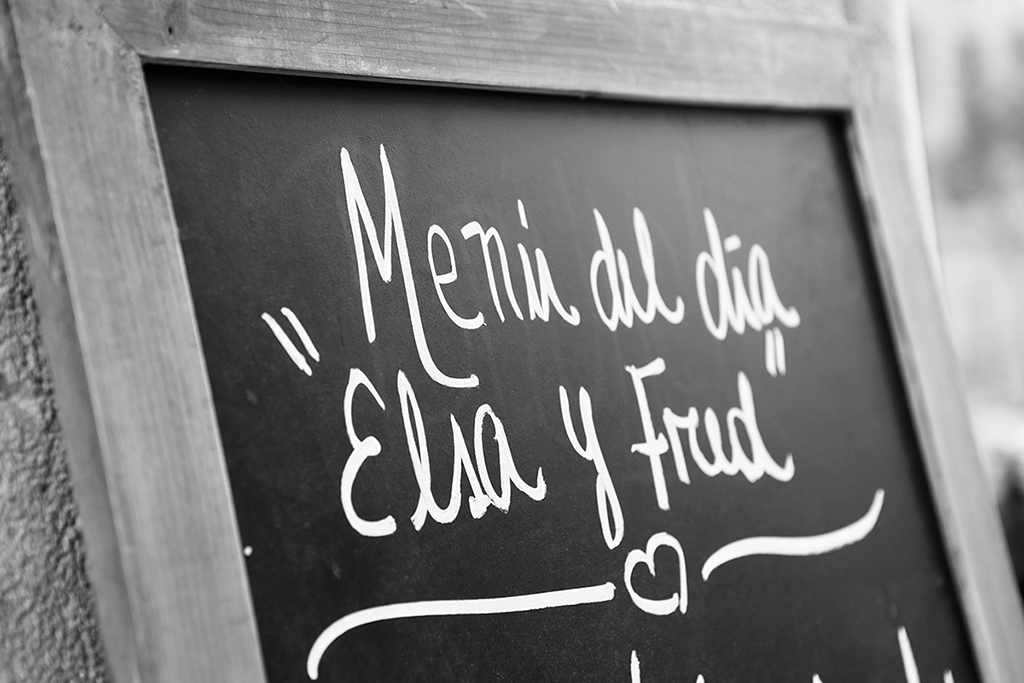 Menú del día
"Elsa y Fred"